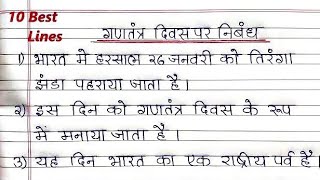 10 Best
Lines
गणतंत्र दिवस पर निबंध
1) भारत में हरसाल २६ जनवरी को तिरंगा
झंडा पहराया जाता है।
2) इस दिन को गणतंत्र दिवस के रूप
में मनाया जाता है।
3) यह दिन भारत का एक राष्ट्रीय पर्व है।